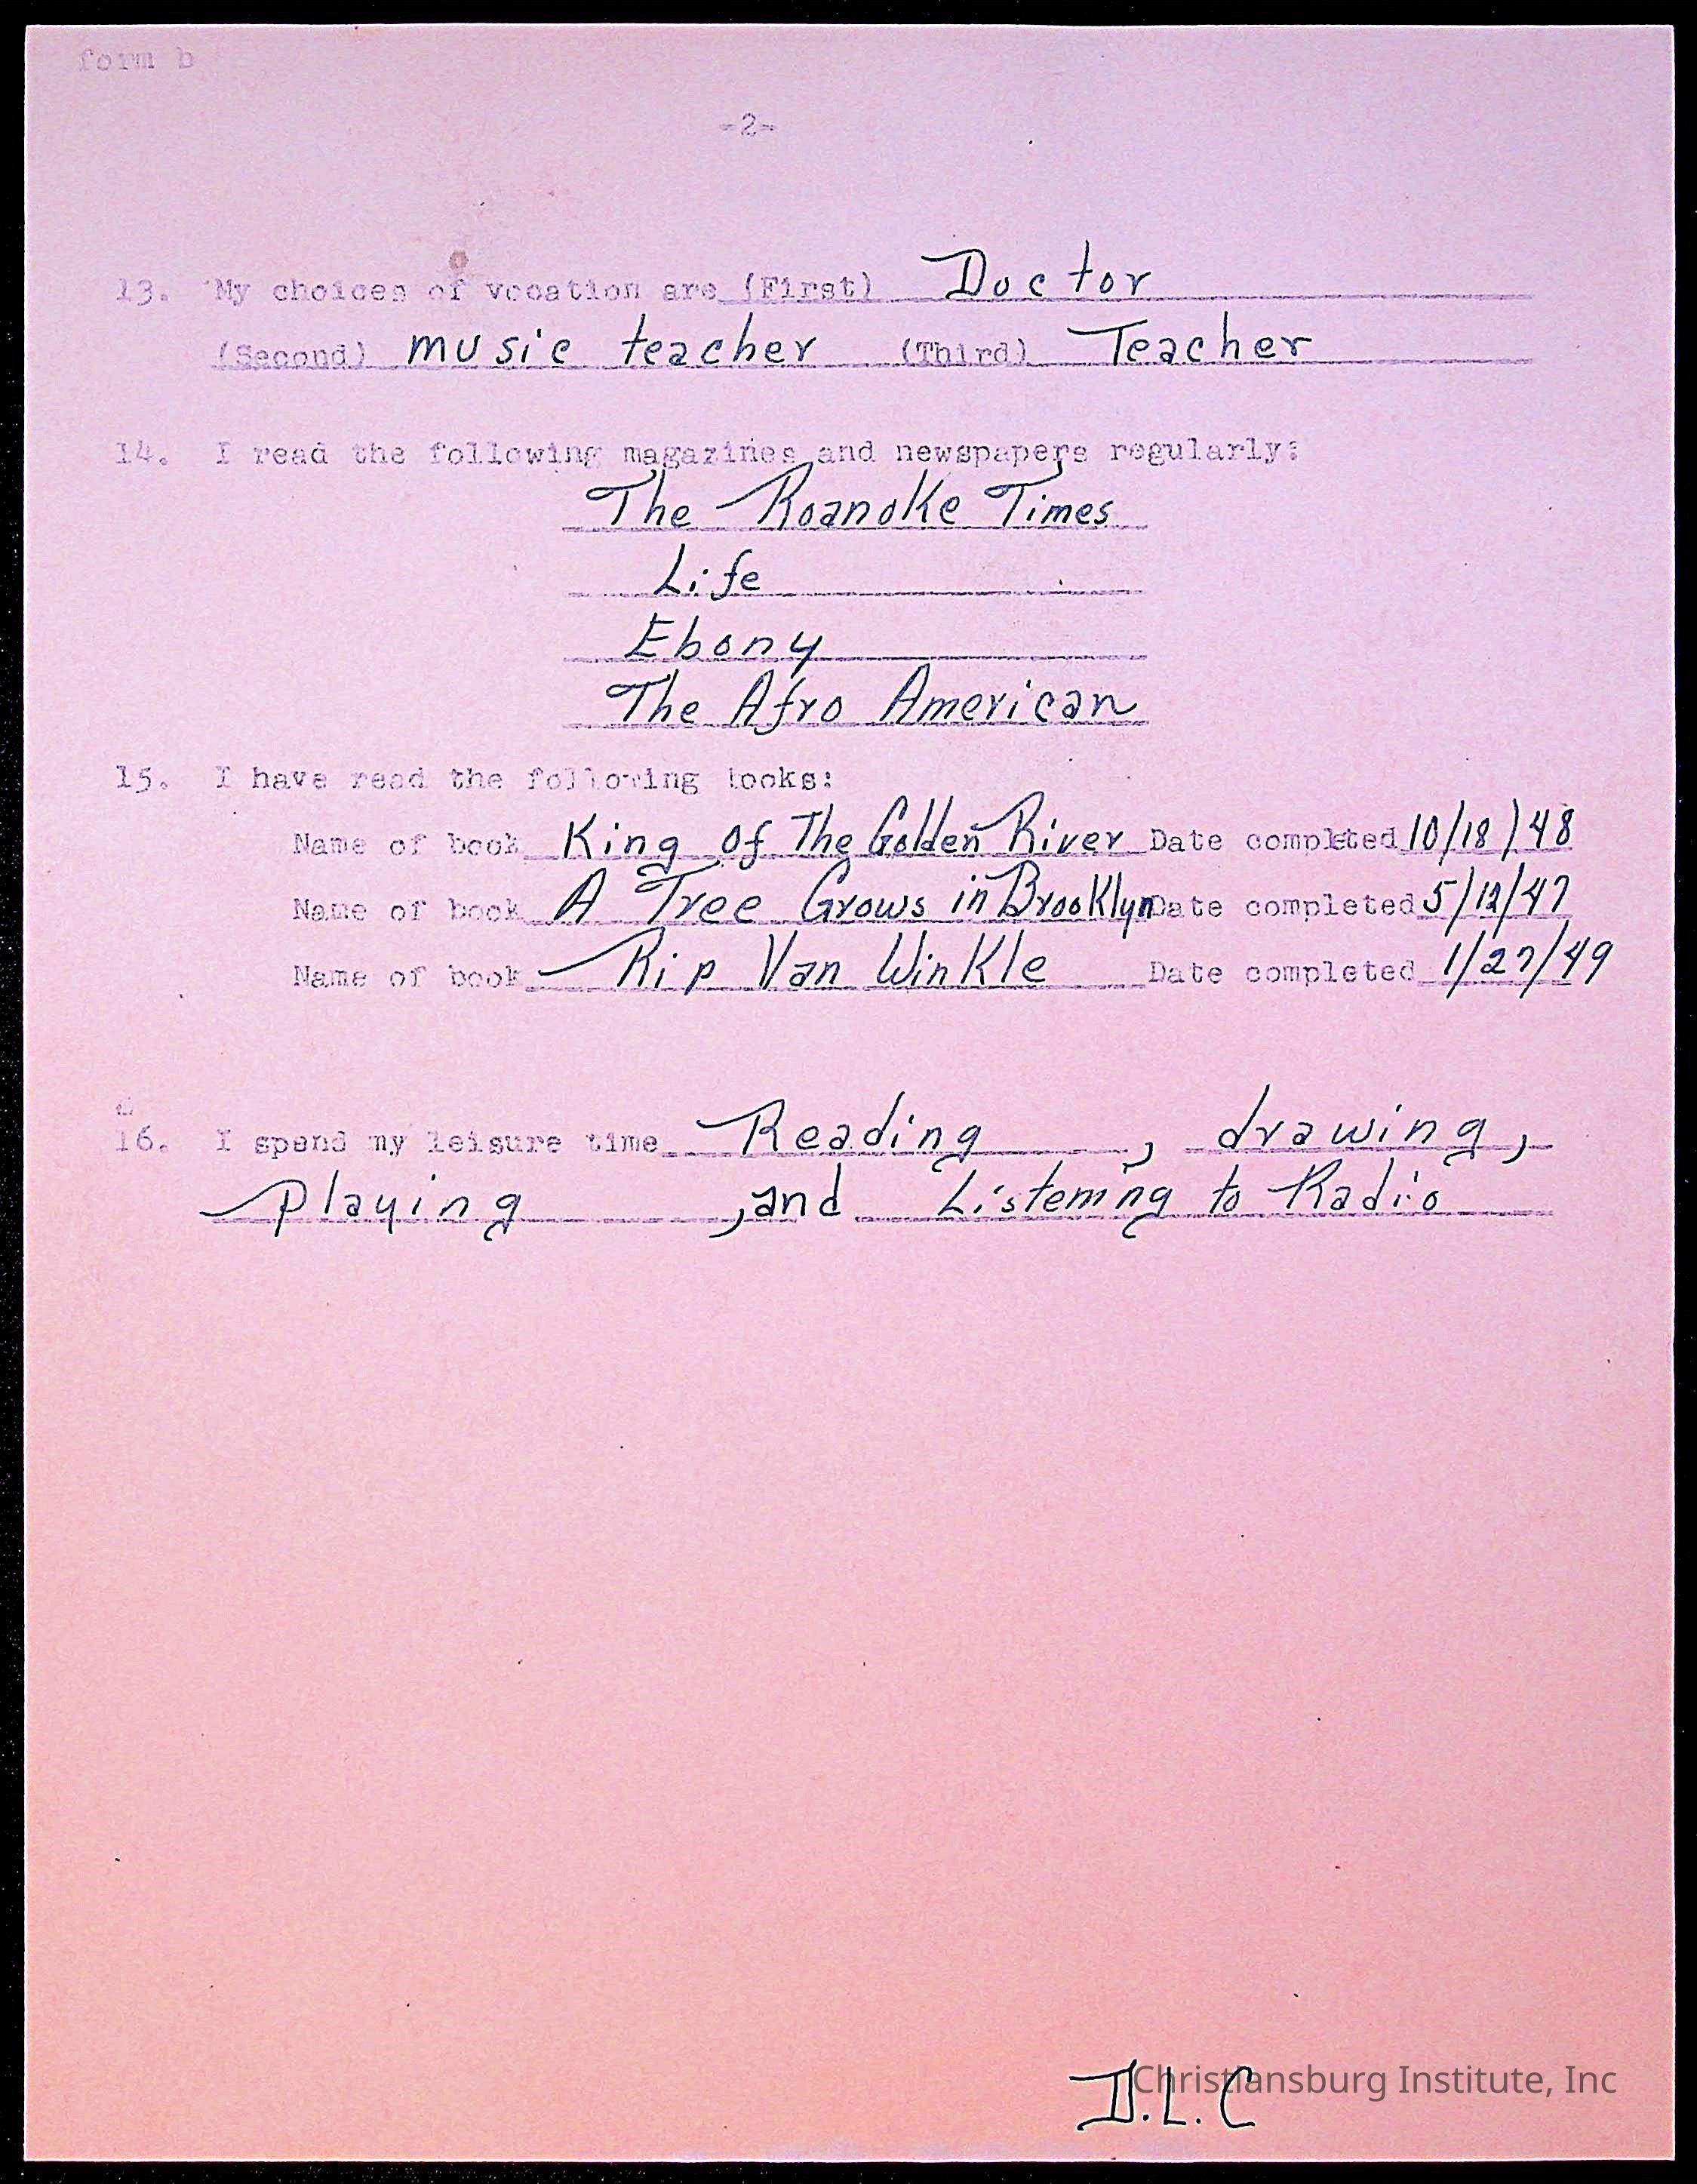 form b
-2-
13. My choices of vocation are (First) Doctor
(Second) music teacher (Third) Teacher
14. I read the following magazines and newspapers regularly:
The Roanoke Times
Life
Ebony
The Afro American
15. I have read the following books:
Name of book King of The Golden River Date completed 10/18/48
Name of book A Tree Grows in Brooklyn Date completed 5/12/47
Name of book Rip Van Winkle Date completed 1/27/49
16. I spend my leisure time Reading, drawing,
playing, and Listening to Radio
Christiansburg Institute, Inc
D.L.C